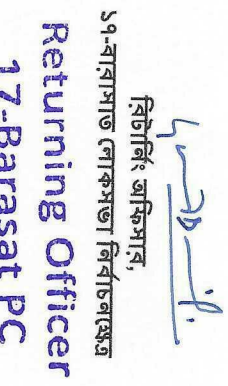 রিটার্নিং অফিসার,
১৭-বারাসাত লোকসভা নির্বাচনক্ষেত্র
Returning Officer
17-Barasat PC